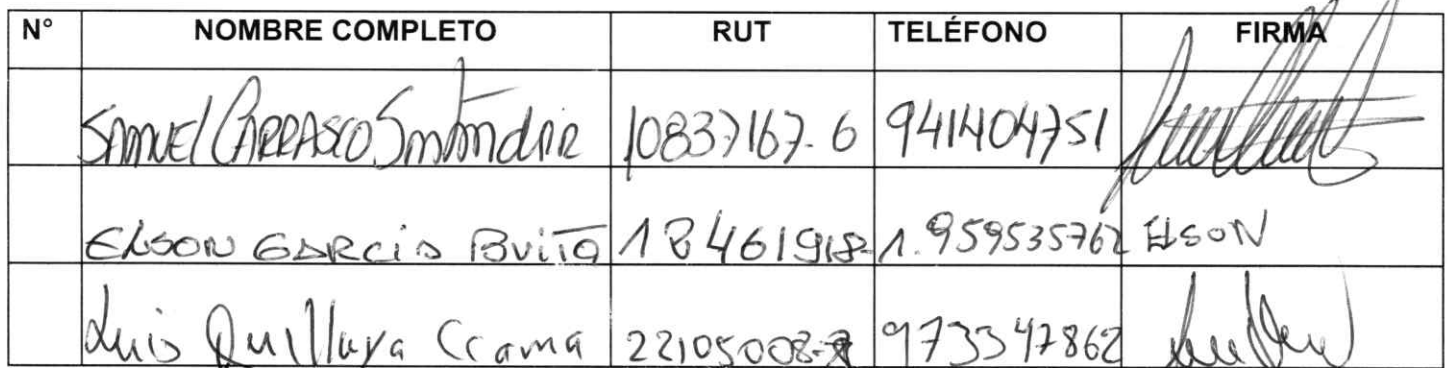 N° NOMBRE COMPLETO RUT TELÉFONO FIRMA
SAMUEl CARRASCO Santander 10837167-6 941404751
ELSON GARCiA BviTO 18461918-1. 959535762 ElSON
Luis Quillaya Ccama 22105008- 973347862